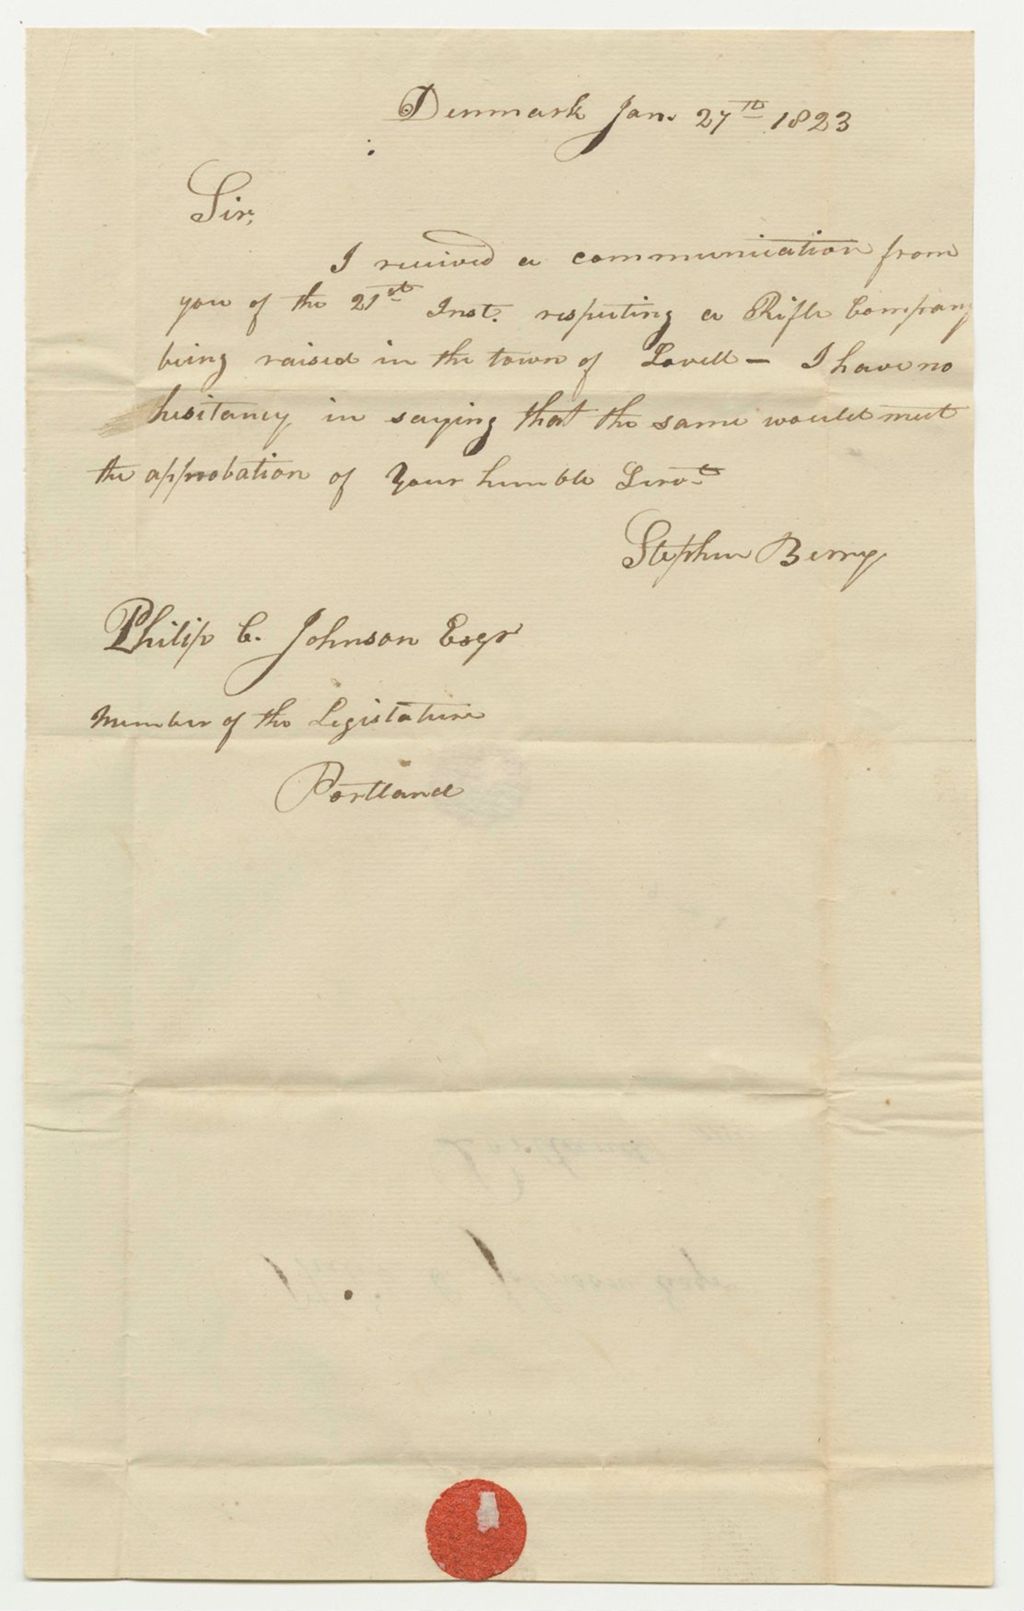 Denmark Jan. 27th 1823
Sir,
I received a communication from
you of the 21st Inst. respecting a Rifle Company
being raised in the town of Lovell — I have no
hesitancy in saying that the same would meet
the approbation of Your humble Servt
Stephen Berry
Philip C. Johnson Esqr
Member of the Legislature
Portland